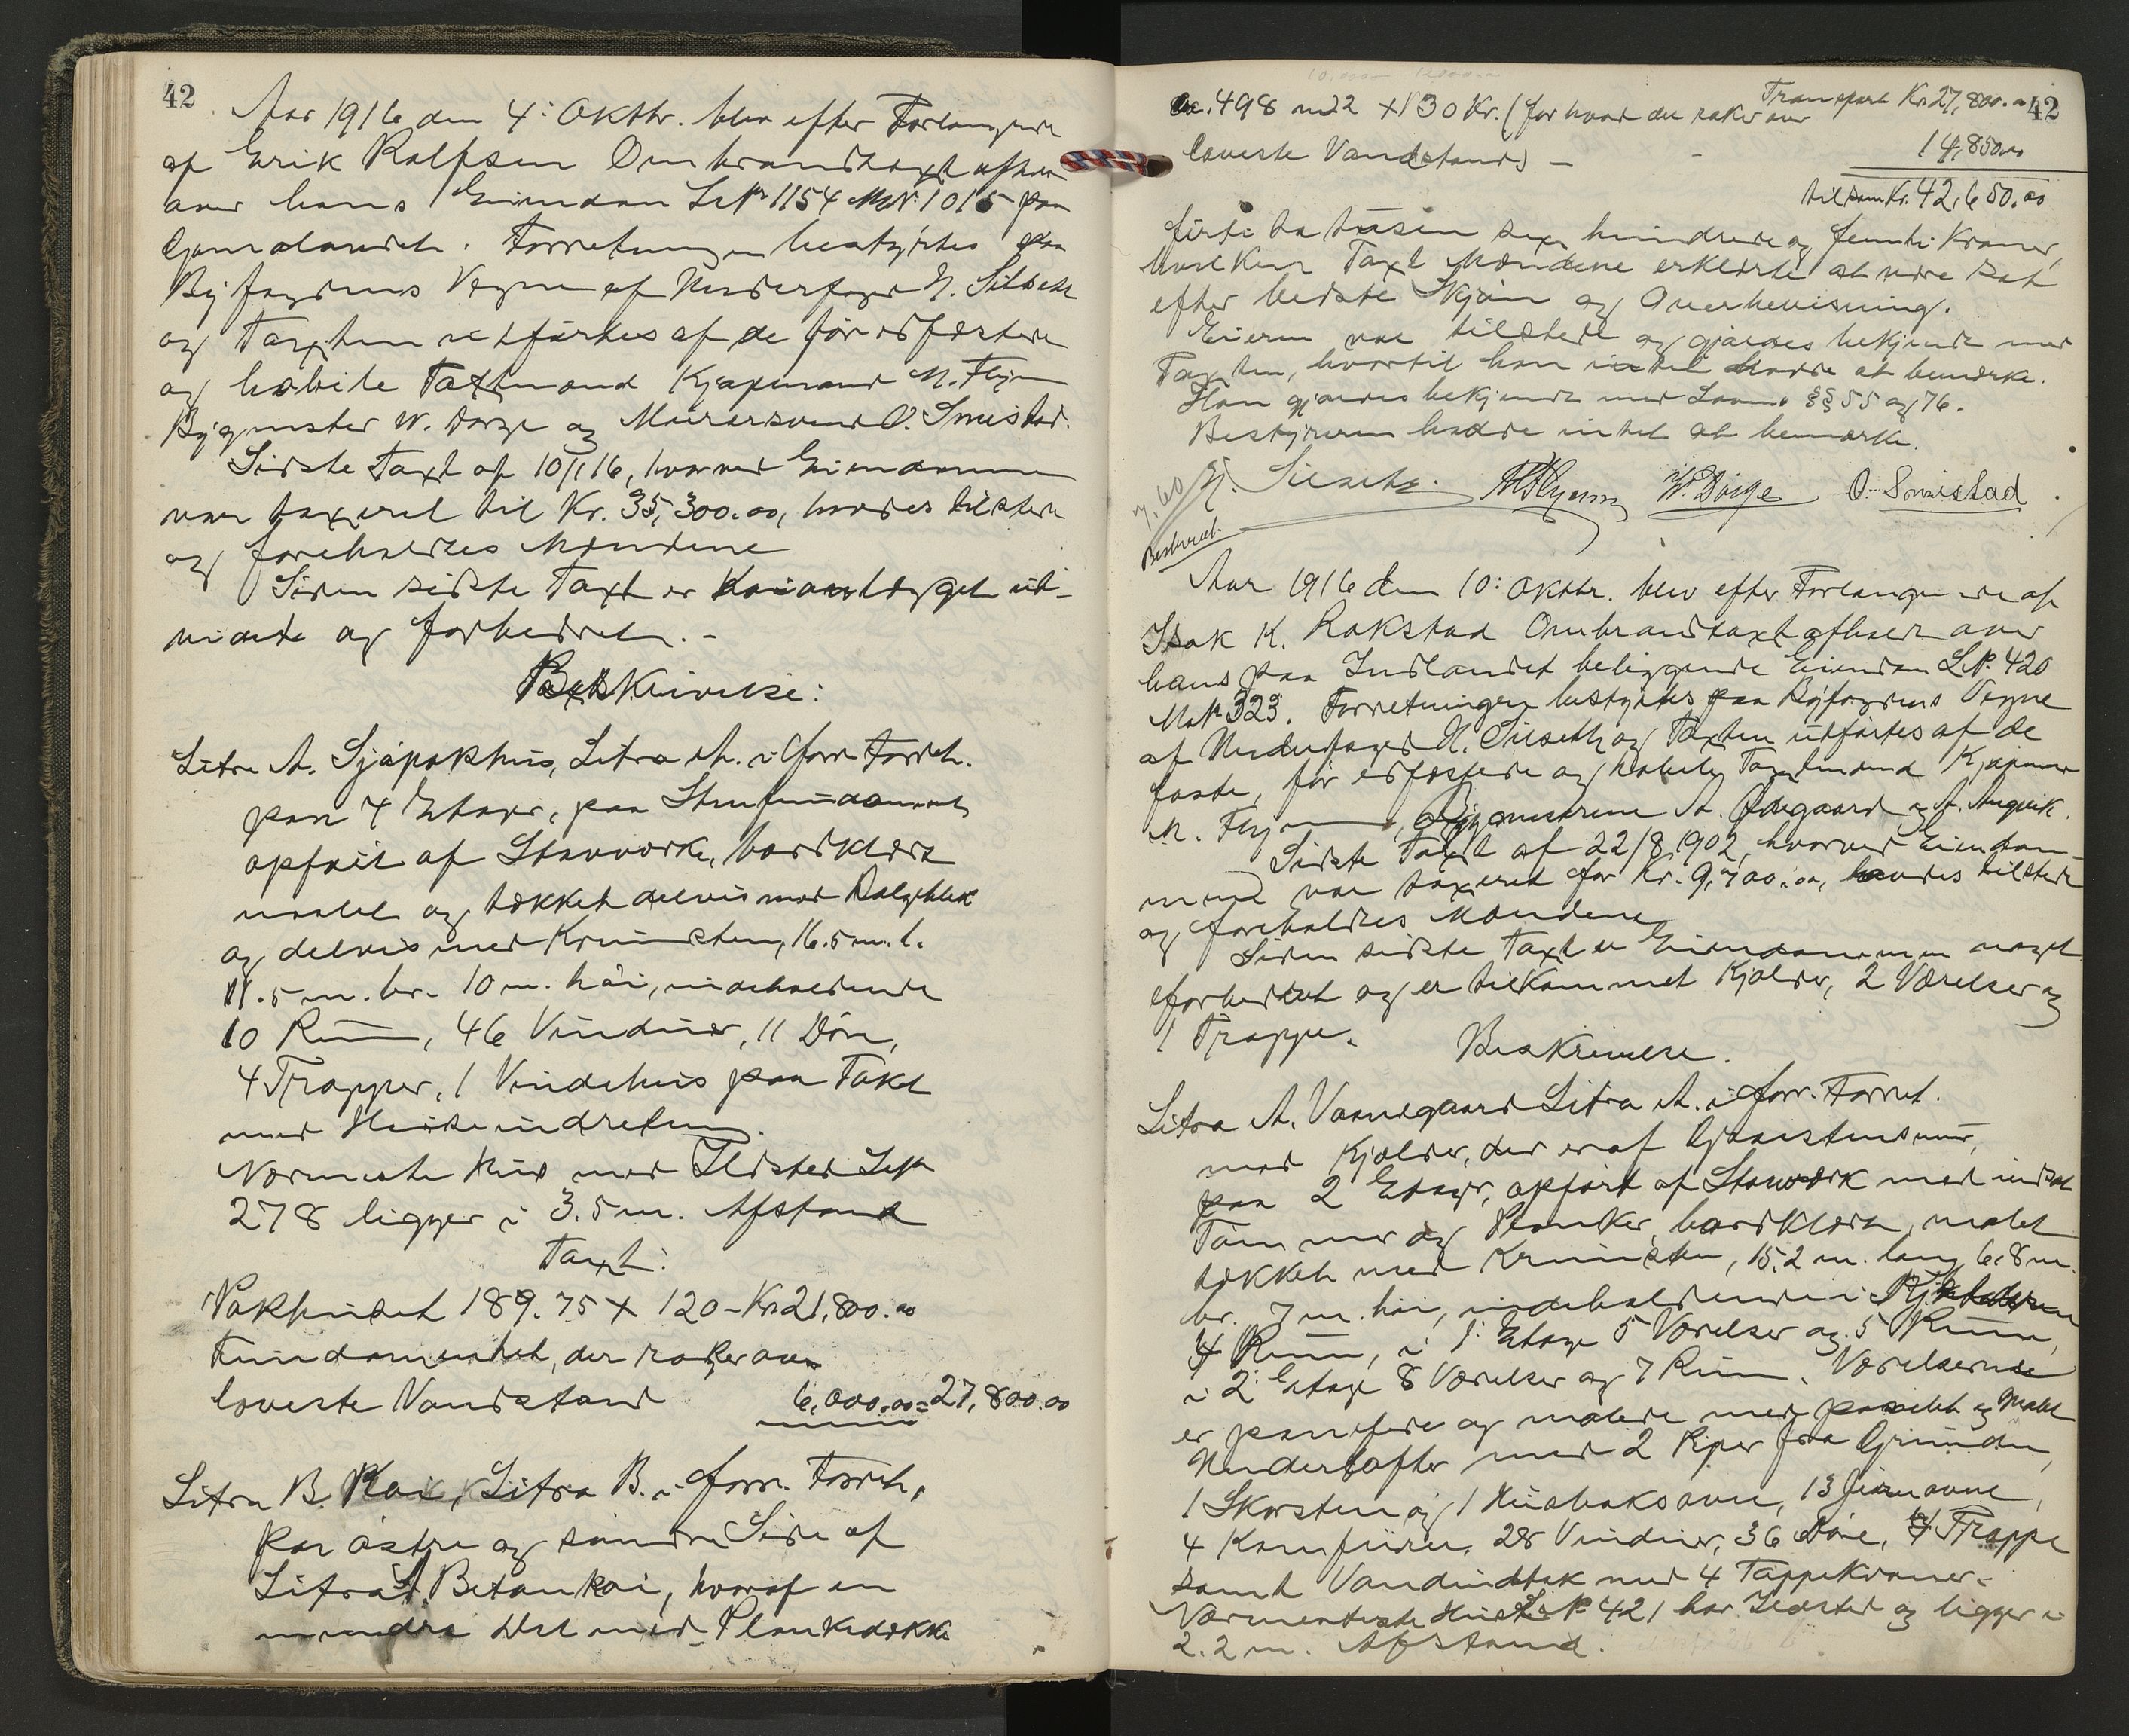 42
Aar 1916 den 4: Oktbr. blev efter Forlangende
af Erik Rolfsen Ombrandtaxt afholdt
over hans Eiendom LNr 1154 MNr. 1015 paa
Gomalandet. Forretningen bestyrtes paa
Byfogdens Vegne af Underfoged N. Silseth
og Taxten udførtes af de før edfæstede
og habile Taxtmænd Kjøpmand M. Flyum
Bygmster W. Dørge og Mürersvend O. Smistad.
Sidste Taxt af 10/1 16, hvorved Eiendommen
var taxeret til Kr. 35,300.00, havdes tilstede
og foreholdtes Mændene
Siden sidste Taxt er Kaianlægget ud-
videt og forbedret. -
Beskrivelse:
Litra A. Sjøpakhus, Litra A. i forr. Forret.
paa 4 Etager, paa Stenfundament
opført af Stavværk, bordklædt
malet og tækket delvis med Bølgeblik
og delvis med Krumsten, 16.5 m. l.
11.5 m. br. 10 m. høi, indeholdende
10 Rum, 46 Vinduer, 11 Døre,
4 Trapper, 1 Vindehus paa Taket
med Heiseindretning.
Nærmeste Hus med Ildsted LNr
278 ligger i 3.5 m. Afstand
Taxt:
Pakhuset 189.75 x 120 - Kr 21,800.00
Fundamentet, der raker over
laveste Vandstand 6,000.00 = 27,800.00
Litra B. Kai, Litra B. i forr. Forret,
paa østre og søndre Side af
Litra A. Betonkai, hvoraf en
mindre Del med Plankedække
42
Transport Kr. 27,800.00
ca. 498 m2 x 30 Kr. (for hvad der raker over
laveste Vandstand) - 14,850.00
tilsam Kr. 42,650.00
førti to tusin sex hundrede og femti Kroner,
hvilken Taxt Mændene erklærte at være sat
efter bedste Skjøn og Overbevisning.
Eieren var tilstede og gjordes bekjendt med
Taxten, hvortil han intet havde at bemerke.
Han gjordes bekjendt med Lovens §§ 55 og 76.
Bestyreren havde intet at bemærke.
7.60
N. Silseth. M Flyum W. Dørge O. Smistad
Beskrevet.
Aar 1916 den 10: Oktbr. blev efter Forlangende af
Isak K. Rokstad Ombrandtaxt afholdt over
hans paa Indlandet beliggende Eiendom LNr. 420
MNr 323. Forretningen bestyrtes paa Byfogdens Vegne
af Underfoged N. Silseth og Taxten udførtes af de
faste, før edfæstede og habile Taxtmænd Kjøpmand
M. Flyum, Bygmestrene A. Ødegaard og A. Angvik.
Sidste Taxt af 22/8 1902, hvorved Eiendom-
men var taxeret for Kr. 9,700.00, havdes tilstede
og foreholdtes Mændene
Siden sidste Taxt er Eiendommen noget
forbedret og er tilkommet Kjælder, 2 Værelser og
1 Trappe.
Beskrivelse.
Litra A. Vaanegaard Litra A. i forr. Forret.
med Kjælder, der er af Graastensmur,
paa 2 Etager, opført af Stavværk med indsat
Tømmer og Planker, bordklædt, malet
tækket med Krumsten, 15.2 m. lang 6.8 m.
br. 7 m. høi, indeholdende i Kjælderen
4 Rum, i 1: Etage 5 Værelser og 5 Rum,
i 2: Etage 8 Værelser og 7 Rum. Værelserne
er panelede og malede med panelet og malet
Underlofter med 2 Piper fra Grunden,
1 Skorsten og 1 Husbaksovn, 13 Jernovne,
4 Komfürer, 28 Vinduer, 36 Døre, 4 Trappe
samt Vandindtak med 4 Tappekraner.
Nærmesteste Hus LNr 421 har Ildsted og ligger i
2.2 m. Afstand.